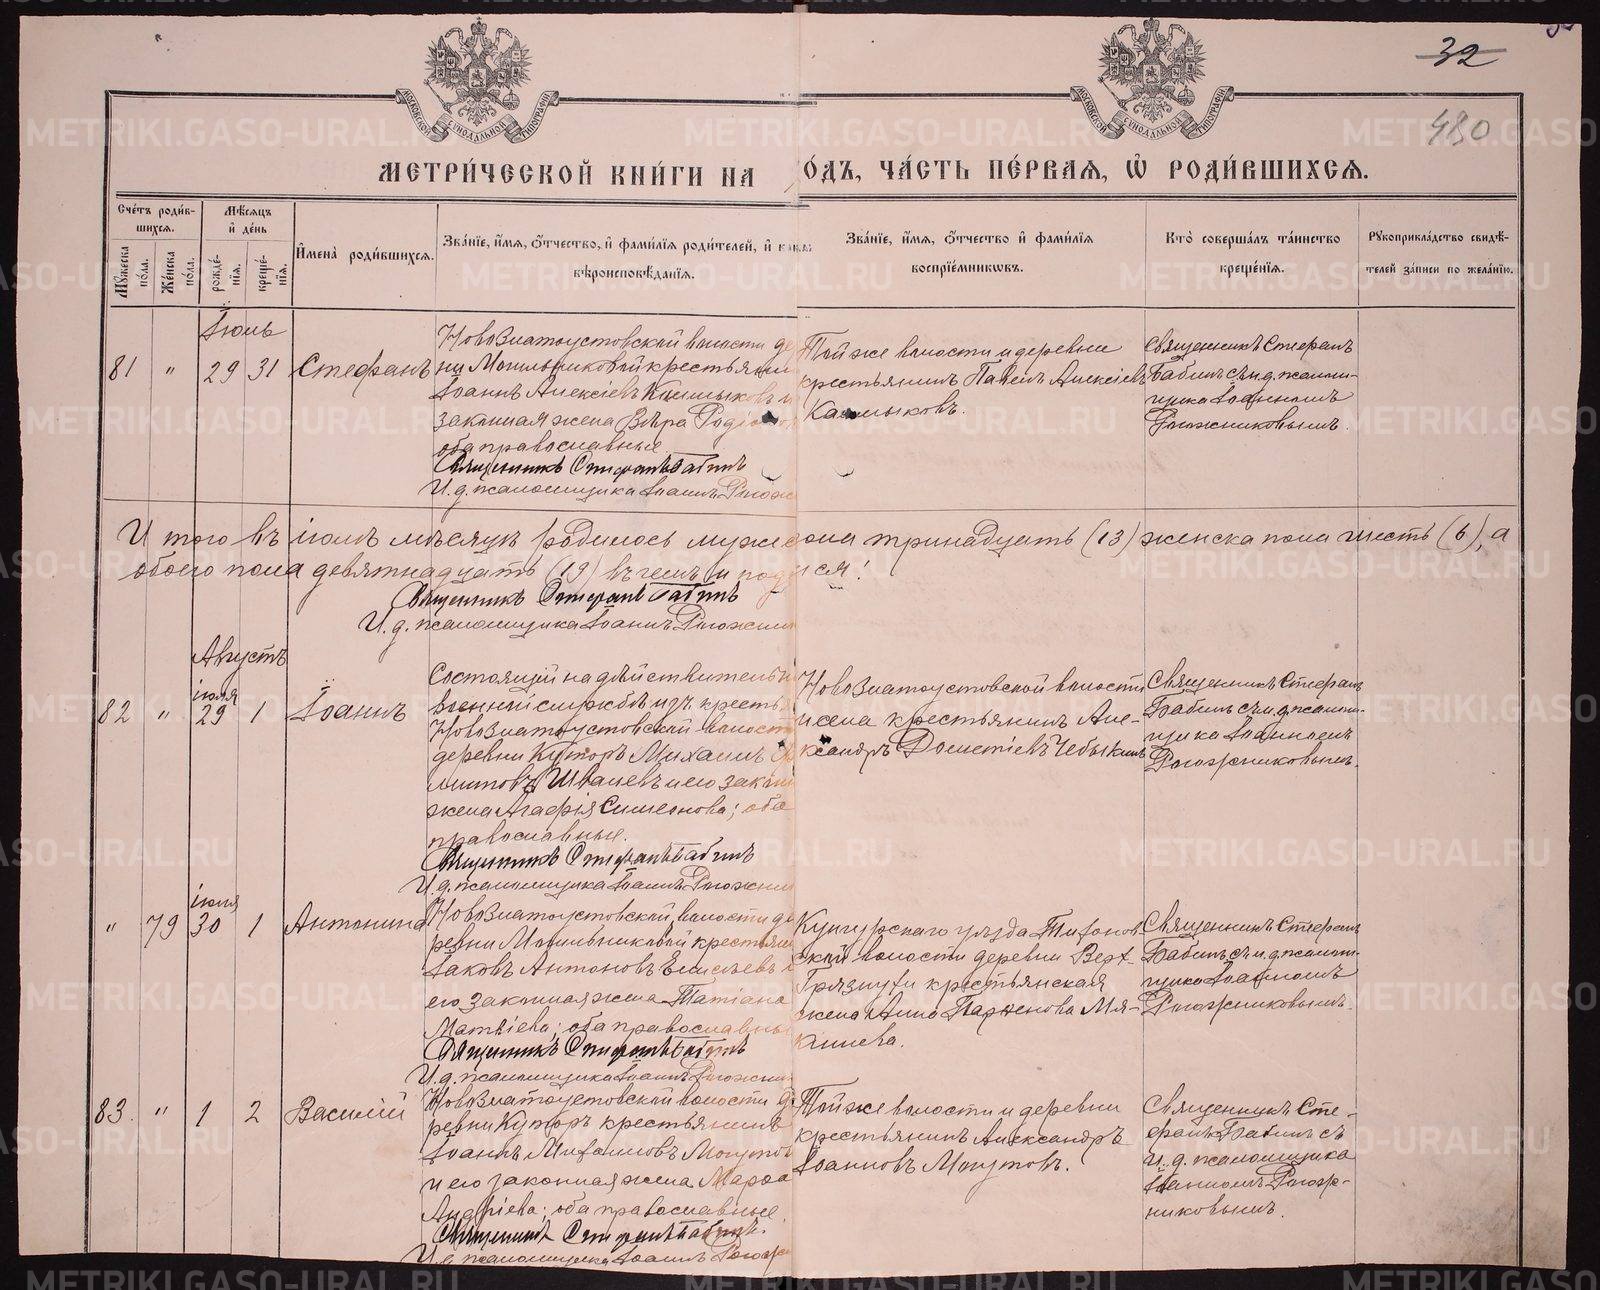 32
480
МОСКОВСКОЙ СѴНОДАЛЬНОЙ ТИПОГРАФІИ
МОСКОВСКОЙ СѴНОДАЛЬНОЙ ТИПОГРАФІИ
МЕТРИ́ЧЕСКОЙ КНИ́ГИ НА ОДЪ, ЧА́СТЬ ПЕ́РВАЯ, Ѡ РОДИ́ВШИХСЯ.
Сче́тъ роди́вшихся.
Мꙋ́жеска по́ла.
Же́нска по́ла.
Мѣ́сяцъ и҆ де́нь
рожде́нїя.
креще́нїя.
И҆мена̀ роди́вшихся.
Зва́нїе, и҆́мя, ѻ҆́тчество, и҆ фами́лїя роди́телей, и҆
вѣроисповѣ́данїя.
Зва́нїе, и҆́мя, ѻ҆́тчество и҆ фами́лїя
воспрїе́мникѡвъ.
Кто̀ соверша́лъ та́инство
креще́нїя.
Рꙋкоприкла́дство свидѣ́-
телей за́писи по жела́нїю.
Іюль
81 " 29 31 Стефанъ
Новозлатоустовской волости де
ни Могильниковой крестьянин
Іоаннъ Алексіевъ Калмыковъ и
законная жена Вѣра Родіо
оба православные
Священникъ Стефанъ Бабинъ
И. д. псаломщика Іоаннъ Рогож
Той же волости и деревни
крестьянинъ Павелъ Алексіевъ
Калмыковъ.
Священникъ Стефанъ
Бабинъ съ и. д. псалом-
щика Іоанномъ
Рогожниковымъ.
Итого въ іюлѣ мѣсяцѣ родилось мужеска пола тринадцать (13) женска пола шесть (6), а
обоего пола девятнадцать (19) въ чемъ и под ся!
Священникъ Стефанъ Бабинъ
И. д. псаломщика Іоаннъ Рогожни
Августъ
82 " іюля 29 1 Іоаннъ
Состоящій на дѣйствительн
военной службѣ изъ кресть
Новозлатоустовской волост
деревни Куторъ Михаилъ
литовъ Швалевъ и его закон
жена Агафія Симеонова; оба
православные.
Священникъ Стефанъ Бабинъ
И. д. псаломщика Іоаннъ Рогожни
Новозлатоустовской волости
и села крестьянинъ Але-
ксандръ Дометіевъ Чебыкинъ
Священникъ Стефанъ
Бабинъ съ и. д. псалом-
щика Іоанномъ
Рогожниковымъ.
" 79 іюля 30 1 Антонина
Новозлатоустовской волости де
ревни Могильниковой крестьян
Іаковъ Антоновъ Елисѣевъ и
его законная жена Татіана
Матвіева; оба православны
Священникъ Стефанъ Бабинъ
И. д. псаломщика Іоаннъ Рогожни
Кунгурскаго уѣзда Тихонов
ской волости деревни Верх-
Грязнухи крестьянская
жена Анна Парѳенова Мя-
кишева.
Священникъ Стефанъ
Бабинъ съ и. д. псалом-
щика Іоанномъ
Рогожниковымъ.
83. " 1 2 Василій
Новозлатоустовской волости де
ревни Куторъ крестьянинъ
Іоаннъ Михаиловъ Могутов
и его законная жена Марѳа
Андріева; оба православные.
Священникъ Стефанъ Бабинъ.
И. д. псаломщика Іоаннъ Рогож
Той же волости и деревни
крестьянинъ Александръ
Іоанновъ Могутовъ.
Священникъ Сте-
фанъ Бабинъ съ
и. д. псаломщика
Іоанномъ Рогож-
никовымъ.
METRIKI.GASO-URAL.RU